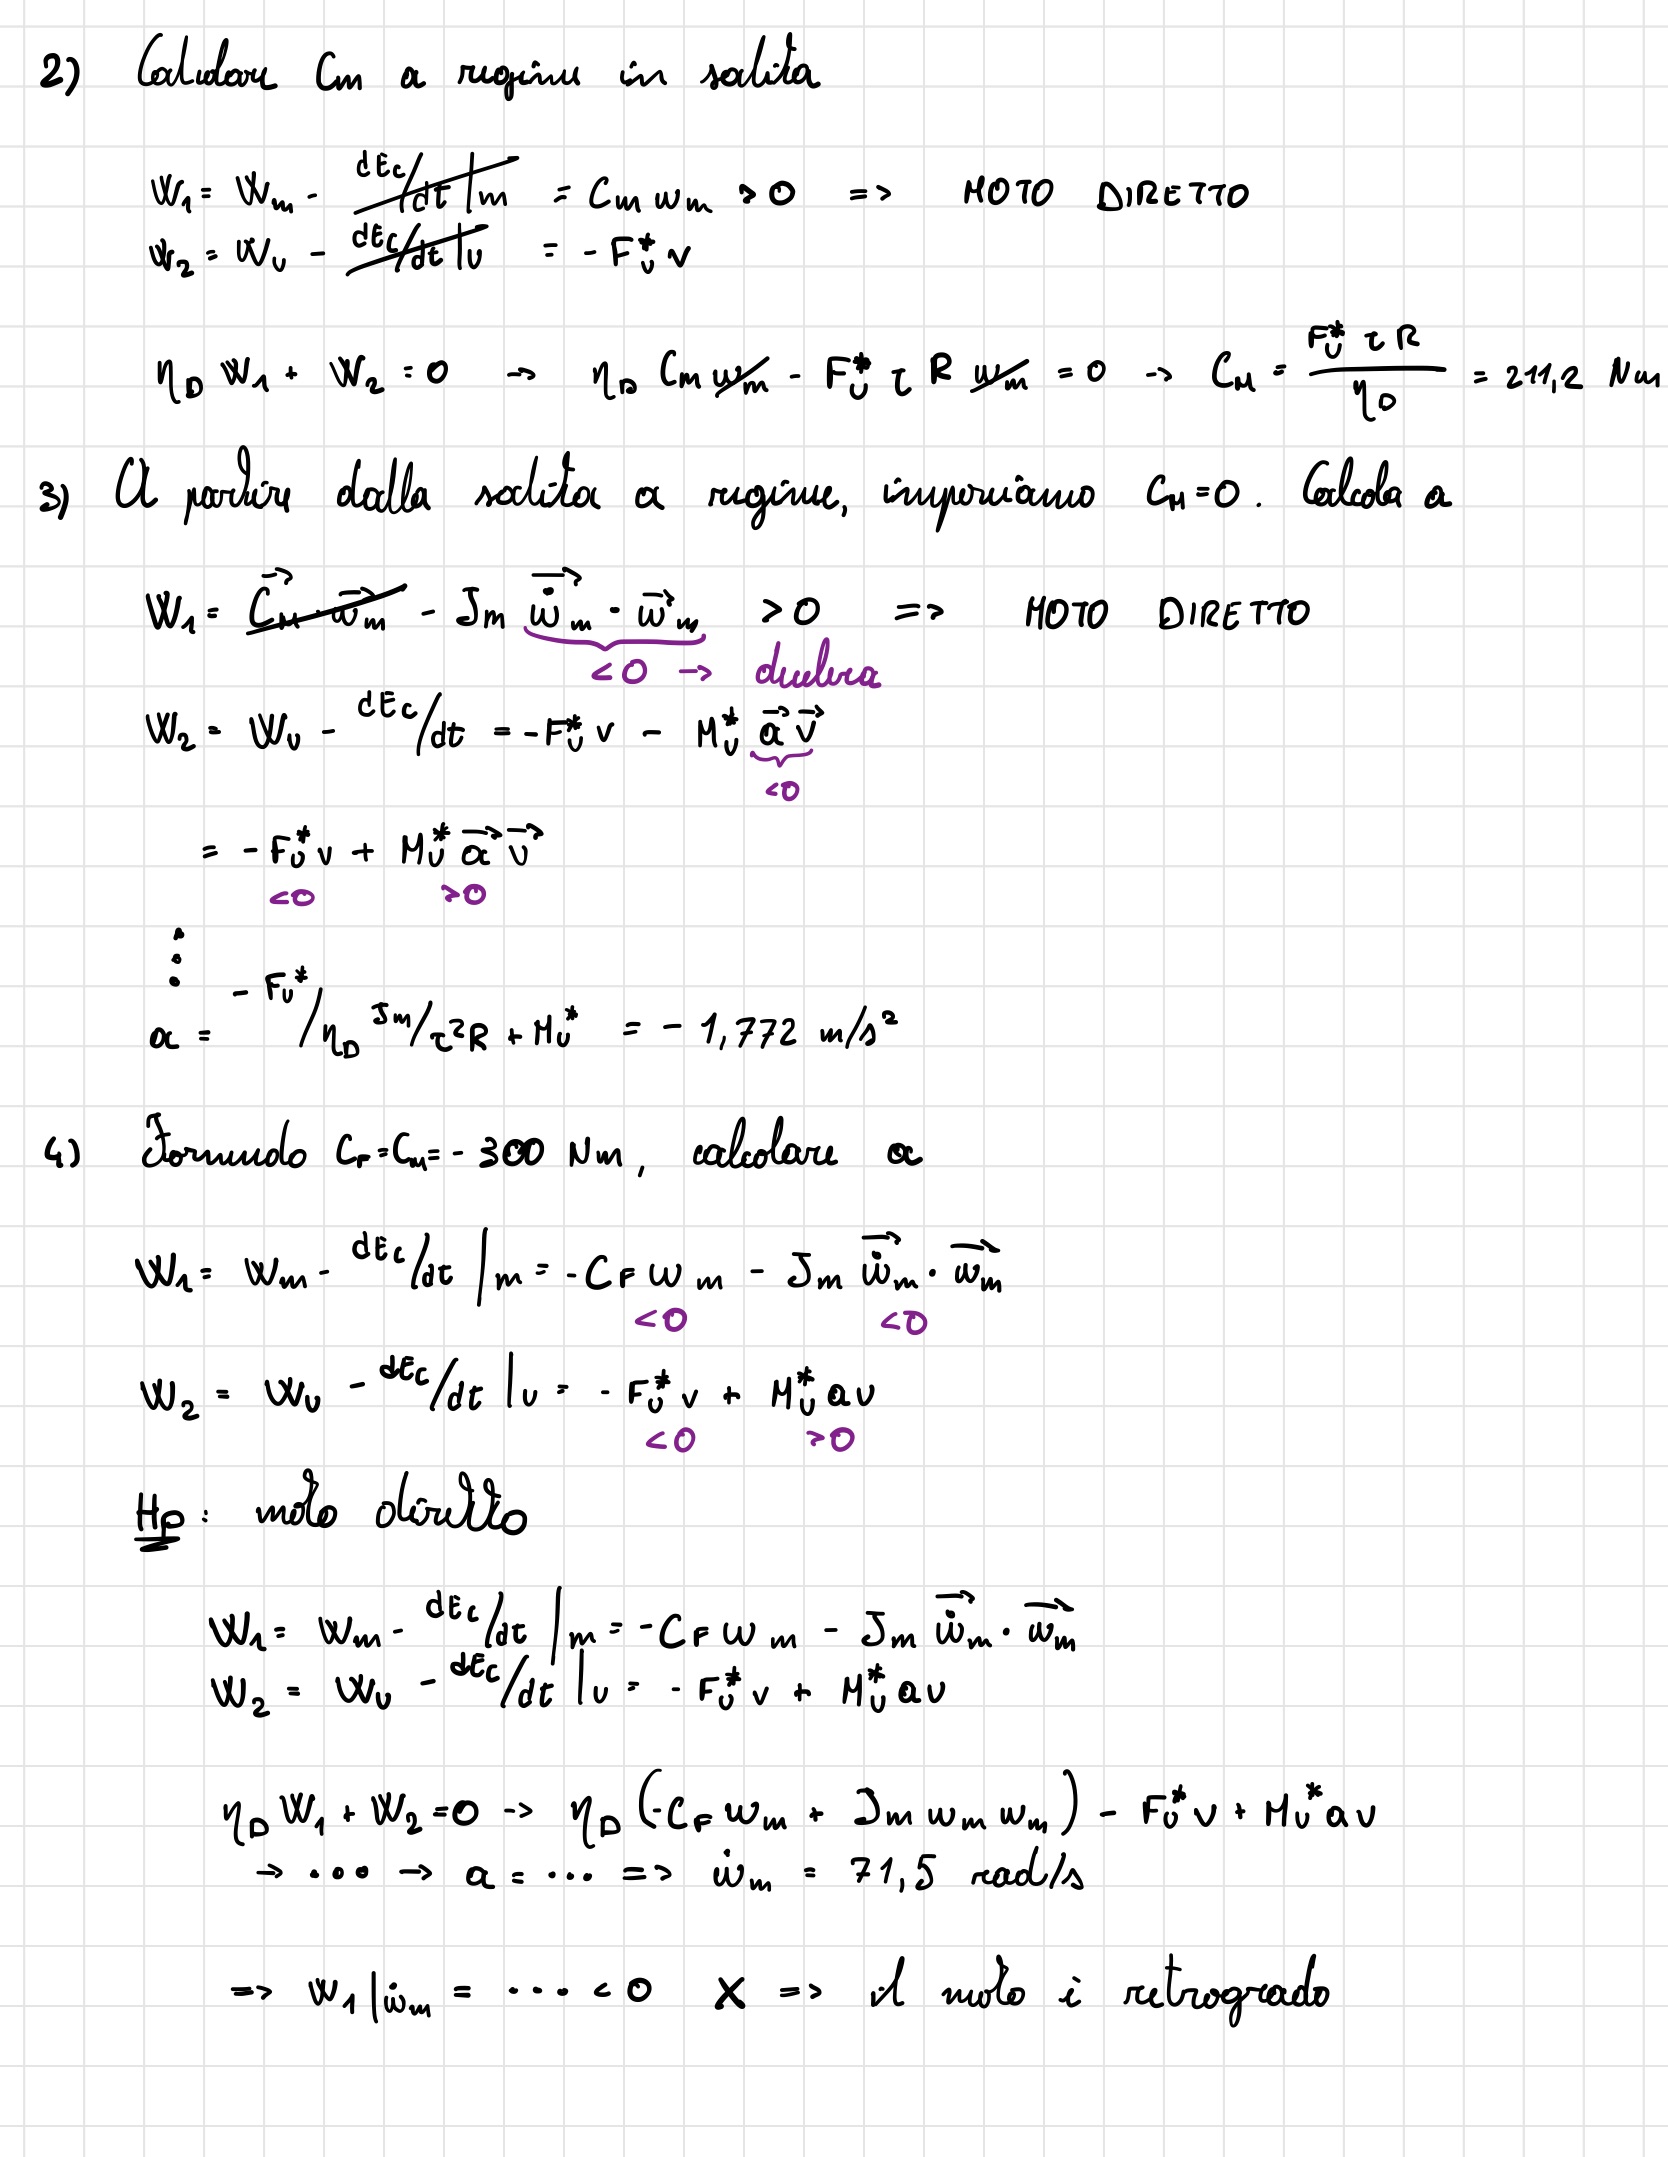 2) Calcolare Cm a regime in salita
W1 = Wm - dEc/dt|m = Cm ωm > 0 => MOTO DIRETTO
W2 = WU - dEc/dt|U = - FU* v
ηD W1 + W2 = 0 -> ηD Cm ωm - FU* τ R ωm = 0 -> CM = FU* τ R / ηD = 211,2 Nm
3) A partire dalla salita a regime, imponiamo CM=0. Calcola a
W1 = CM · ωm - Jm ω̇m · ωm > 0 => MOTO DIRETTO
<0 -> decelera
W2 = WU - dEc/dt = -FU* v - MU* a v
<0
= - FU* v + MU* a v
<0 >0
⋮
a = - FU* / ηD Jm/τ²R + MU* = - 1,772 m/s²
4) Fornendo CF=CM=- 300 Nm, calcolare a
W1 = Wm - dEc/dt|m = -CF ωm - Jm ω̇m · ωm
<0 <0
W2 = WU - dEc/dt|U = - FU* v + MU* a v
<0 >0
Hp: moto diretto
W1 = Wm - dEc/dt|m = -CF ωm - Jm ω̇m · ωm
W2 = WU - dEc/dt|U = - FU* v + MU* a v
ηD W1 + W2 = 0 -> ηD (-CF ωm + Jm ωm ωm) - FU* v + MU* a v
-> ... -> a = ... => ω̇m = 71,5 rad/s
=> W1|ω̇m = .... < 0 X => il moto è retrogrado